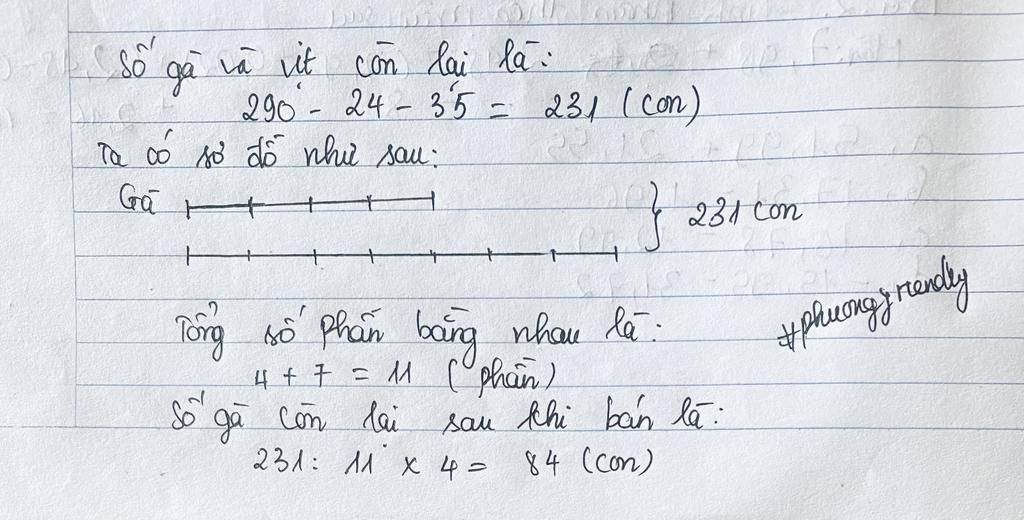 Số gà và vịt còn lại là:
290 - 24 - 35 = 231 (con)
Ta có sơ đồ như sau:
Gà
} 231 con
Tổng số phần bằng nhau là:
4 + 7 = 11 (phần)
Số gà còn lại sau khi bán là:
231 : 11 x 4 = 84 (con)
#phuongfriendly